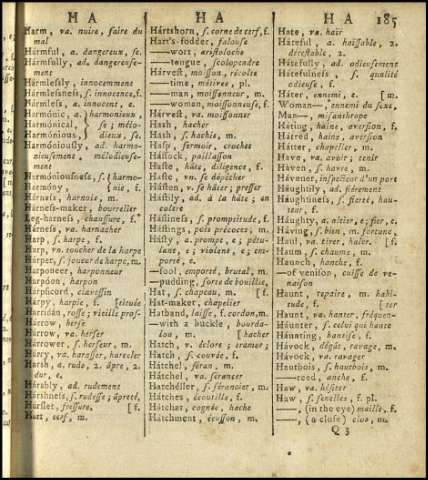 H A
H A
H A
185
Harm, va. nuire, faire du
mal
Hármful, a. dangereux, se.
Hármfully, ad. dangereuse-
ment
Hármlessly, innocemment
Hármlessness, s. innocence, f.
Hármless, a. innocent, e.
Harmónic, a. harmonieux
Harmónical, se; mélo-
Harmónious, dieux, se.
Harmóniously, ad. harmo-
nieusement, mélodieuse-
ment
Harmóniousness, s. harmo-
Harmóny, nie, f.
Hárness, harnois, m.
Hárness-maker, bourrelier
Leg-harness, chaussure, f.
Hárness, va. harnacher
Harp, s. harpe, f.
Harp, vn. toucher de la harpe
Hárper, s. joueur de harpe, m.
Harponeer, harponneur
Harpóon, harpon
Hárpsicord, clavessin
Hárpy, harpie, f. [tituée
Harridán, rosse; vieille pros-
Hárrow, herse
Hárrow, va. herser
Hárrower, s. herseur, m.
Hárry, va. harasser, harceler
Harsh, a. rude, 2. âpre, 2.
dur, e.
Hárshly, ad. rudement
Hárshness, s. rudesse; âpreté,
Hárslet, fressure, [f.
Hart, cerf, m.
Hártshorn, s. corne de cerf, f.
Hart's-fodder, falouse
—wort, aristoloche
—tongue, scolopendre
Hárvest, moisson, récolte
—time, métives, pl.
—man, moissonneur, m.
—woman, moissonneuse, f.
Hárvest, va. moissonner
Hash, hacher
Hash, s. hachis, m.
Hasp, fermoir, crochet
Hássock, paillasson
Haste, hâte, diligence, f.
Haste, vn. se dépêcher
Hásten, v. se hâter; presser
Hástily, ad. à la hâte; en
colere
Hástiness, s. promptitude, f.
Hástings, pois précoces, m.
Hásty, a. prompt, e; pétu-
lent, e; violent, e; em-
porté, e.
—fool, emporté, brutal, m.
—pudding, sorte de bouillie,
Hat, s. chapeau, m. [f.
Hat-maker, chapelier
Hatband, laisse, f. cordon, m.
—with a buckle, bourda-
lou, m. [hacher
Hatch, v. éclore; tramer;
Hatch, s. couvée, f.
Hátchel, séran, m.
Hátchel, va. sérancer
Hatchéller, s. sérancier, m.
Hátches, écoutille, f.
Hátchet, cognée, hache
Hátchment, écusson, m.
Hate, va. haïr
Háteful, a. haïssable, 2.
détestable, 2.
Hátefully, ad. odieusement
Hátefulness, s. qualité
odieuse, f.
Háter, ennemi, e. [m.
Woman—, ennemi du sexe,
Man—, misanthrope
Háting, haine, aversion, f.
Hátred, haine, aversion
Hátter, chapelier, m.
Have, va. avoir; tenir
Háven, s. havre, m.
Hávener, inspecteur d'un port
Háughtily, ad. fiérement
Háughtiness, s. fierté, hau-
teur, f.
Háughty, a. altier, e; fier, e.
Háving, s. bien, m. fortune,
Haul, va. tirer, haler. [f.
Haum, s. chaume, m.
Haunch, hanche, f.
—of venison, cuisse de ve-
naison
Haunt, repaire, m. habi-
tude, f. [ter
Haunt, va. hanter, fréquen-
Háunter, s. celui qui hante
Háunting, hantise, f.
Hávock, dégât, ravage, m.
Hávock, va. ravager
Hautbois, s. hautbois, m.
—reed, anche, f.
Haw, va. hésiter
Haw, s. senelles, f. pl.
—, (in the eye) maille, f.
—, (a close) clos, m.
Q 3